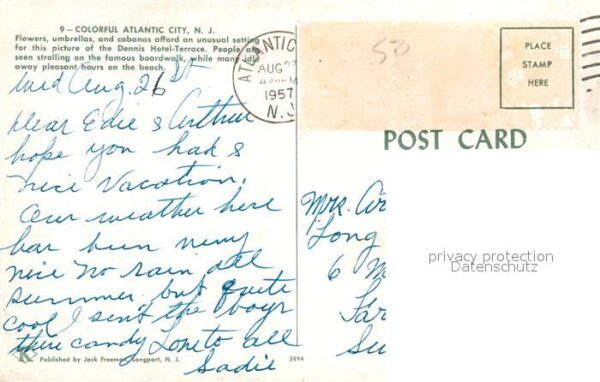 9 – COLORFUL ATLANTIC CITY, N. J.
Flowers, umbrellas, and cabanas afford an unusual setting
for this picture of the Dennis Hotel-Terrace. People are
seen strolling on the famous boardwalk, while many idle
away pleasant hours on the beach.
Wed Aug. 26
Dear Edie & Arthur
hope you had a
nice Vacation.
Our weather here
has been very
nice no rain all
summer. but quite
cool I sent the boys
there candy Love to all
Sadie
K
Published by Jack Freeman, Longport, N. J.
2094
ATLANTIC
AUG 27
PM
1957
N. J.
50
PLACE
STAMP
HERE
POST CARD
Mrs. Ar
Long
6
Far
Su
privacy protection
Datenschutz